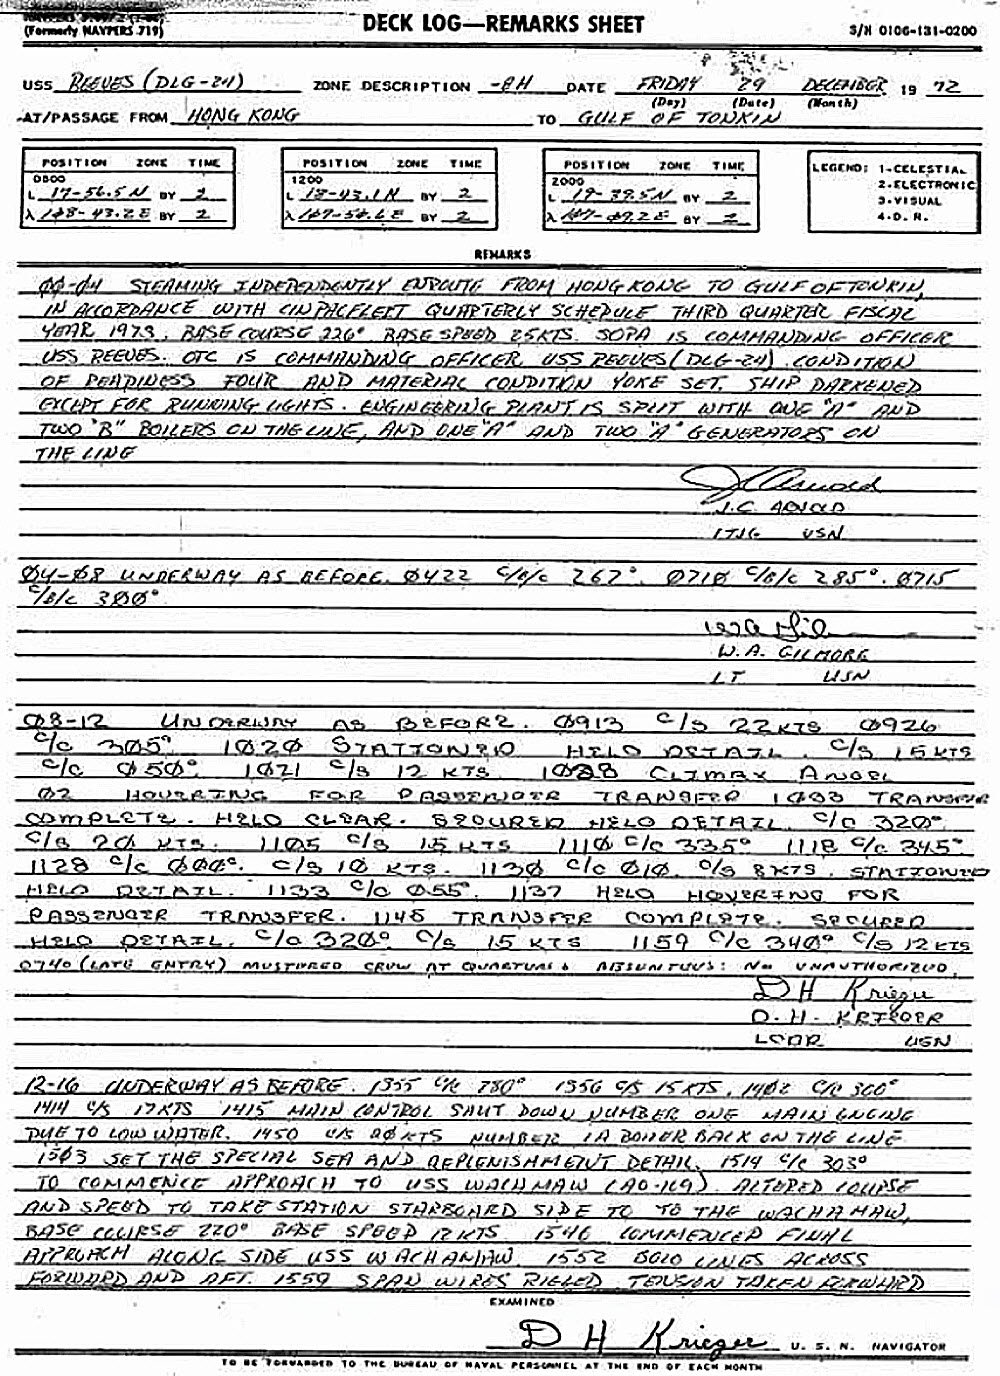 (Formerly NAVPERS 719)
DECK LOG—REMARKS SHEET
S/N 0106-131-0200
USS REEVES (DLG-24) ZONE DESCRIPTION -8H DATE FRIDAY 29 DECEMBER 19 72
(Day) (Date) (Month)
AT/PASSAGE FROM HONG KONG TO GULF OF TONKIN
POSITION ZONE TIME POSITION ZONE TIME POSITION ZONE TIME
0800 1200 2000
L 17-56.5N BY 2 L 18-43.1N BY 2 L 19-39.5N BY 2
λ 108-43.2E BY 2 λ BY 2 λ 107-09.2E BY 2
LEGEND: 1-CELESTIAL
2-ELECTRONIC
3-VISUAL
4-D. R.
REMARKS
00-04 STEAMING INDEPENDENTLY ENROUTE FROM HONG KONG TO GULF OF TONKIN,
IN ACCORDANCE WITH CINPACFLEET QUARTERLY SCHEDULE THIRD QUARTER FISCAL
YEAR 1973. BASE COURSE 226° BASE SPEED 25KTS. SOPA IS COMMANDING OFFICER
USS REEVES. OTC IS COMMANDING OFFICER USS REEVES (DLG-24). CONDITION
OF READINESS FOUR AND MATERIAL CONDITION YOKE SET. SHIP DARKENED
EXCEPT FOR RUNNING LIGHTS. ENGINEERING PLANT IS SPLIT WITH ONE "A" AND
TWO "B" BOILERS ON THE LINE, AND ONE "A" AND TWO "A" GENERATORS ON
THE LINE
J.C. Arnold
J.C. ARNOLD
LTJG USN
04-08 UNDERWAY AS BEFORE. 0422 C/B/C 267°. 0710 C/B/C 285°. 0715
C/B/C 300°
W.A. GILMORE
LT USN
08-12 UNDERWAY AS BEFORE. 0913 C/S 22 KTS 0926
C/C 305° 1020 STATIONED HELO DETAIL. C/S 15 KTS
C/C 050°. 1021 C/S 12 KTS. 1028 CLIMAX ANGEL
02 HOVERING FOR PASSENGER TRANSFER 1033 TRANSFER
COMPLETE. HELO CLEAR. SECURED HELO DETAIL. C/C 320°
C/S 20 KTS. 1105 C/S 15 KTS 1110 C/C 335° 1118 C/C 345°
1128 C/C 000°. C/S 10 KTS. 1130 C/C 010. C/S 8KTS. STATIONED
HELO DETAIL. 1133 C/C 055°. 1137 HELO HOVERING FOR
PASSENGER TRANSFER. 1145 TRANSFER COMPLETE. SECURED
HELO DETAIL. C/C 320° C/S 15 KTS 1159 C/C 340° C/S 12 KTS
0740 (LATE ENTRY) MUSTERED CREW AT QUARTERS ABSENTEES: NO UNAUTHORIZED.
D H Krieger
D. H. KRIEGER
LCDR USN
12-16 UNDERWAY AS BEFORE. 1355 C/C 1356 C/S 15 KTS. 1402 C/C 300°
1414 C/S 17KTS 1415 MAIN CONTROL SHUT DOWN NUMBER ONE MAIN ENGINE
DUE TO LOW WATER. 1450 C/S 20 KTS NUMBER 1A BOILER BACK ON THE LINE
1503 SET THE SPECIAL SEA AND REPLENISHMENT DETAIL. 1514 C/C 303°
TO COMMENCE APPROACH TO USS WACHMAW (AO-109). ALTERED COURSE
AND SPEED TO TAKE STATION STARBOARD SIDE TO TO THE WACHAMAW,
BASE COURSE 220° BASE SPEED 12 KTS 1546 COMMENCED FINAL
APPROACH ALONG SIDE USS WACHAMAW. 1552 BOLO LINES ACROSS
FORWARD AND AFT. 1559 SPAN WIRES RIGGED TENSION TAKEN FORWARD
EXAMINED
D H Krieger U. S. N. NAVIGATOR
TO BE FORWARDED TO THE BUREAU OF NAVAL PERSONNEL AT THE END OF EACH MONTH